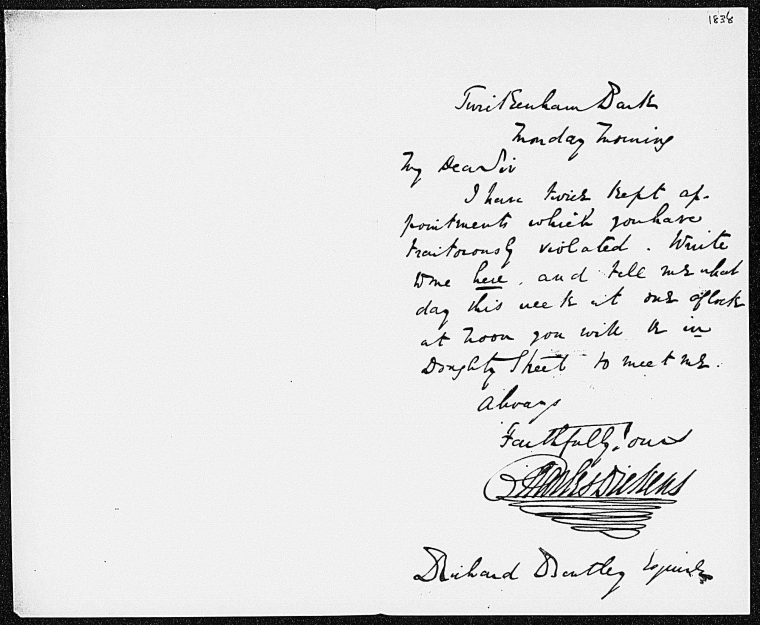 1838
Twickenham Park
Monday Morning
My Dear Sir
I have twice kept ap-
pointments which you have
traitorously violated. Write
to me here, and tell me what
day this week at one o'Clock
at noon you will be in
Doughty Street to meet me.
Always
Faithfully Yours
Charles Dickens
Richard Bentley Esquire